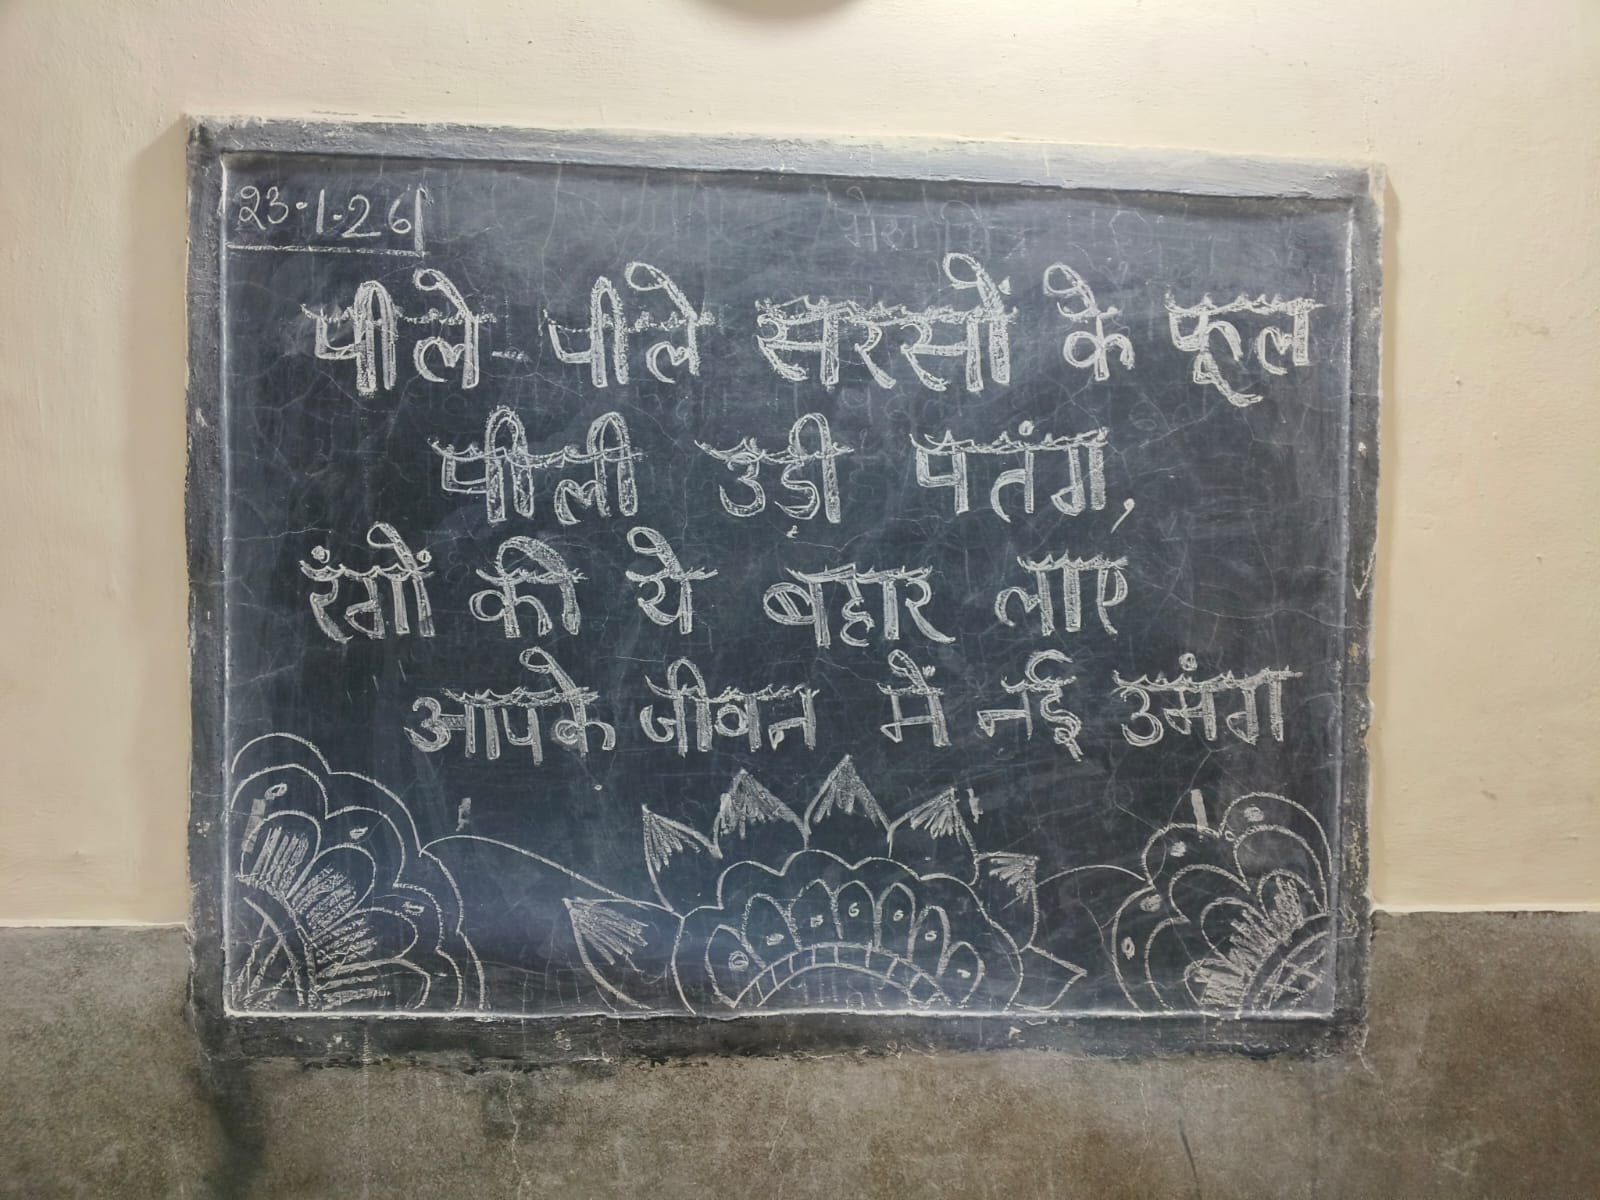 23.1.26
पीले-पीले सरसों के फूल
पीली उडी पतंग,
रंगों की ये बहार लाए
आपके जीवन में नई उमंग